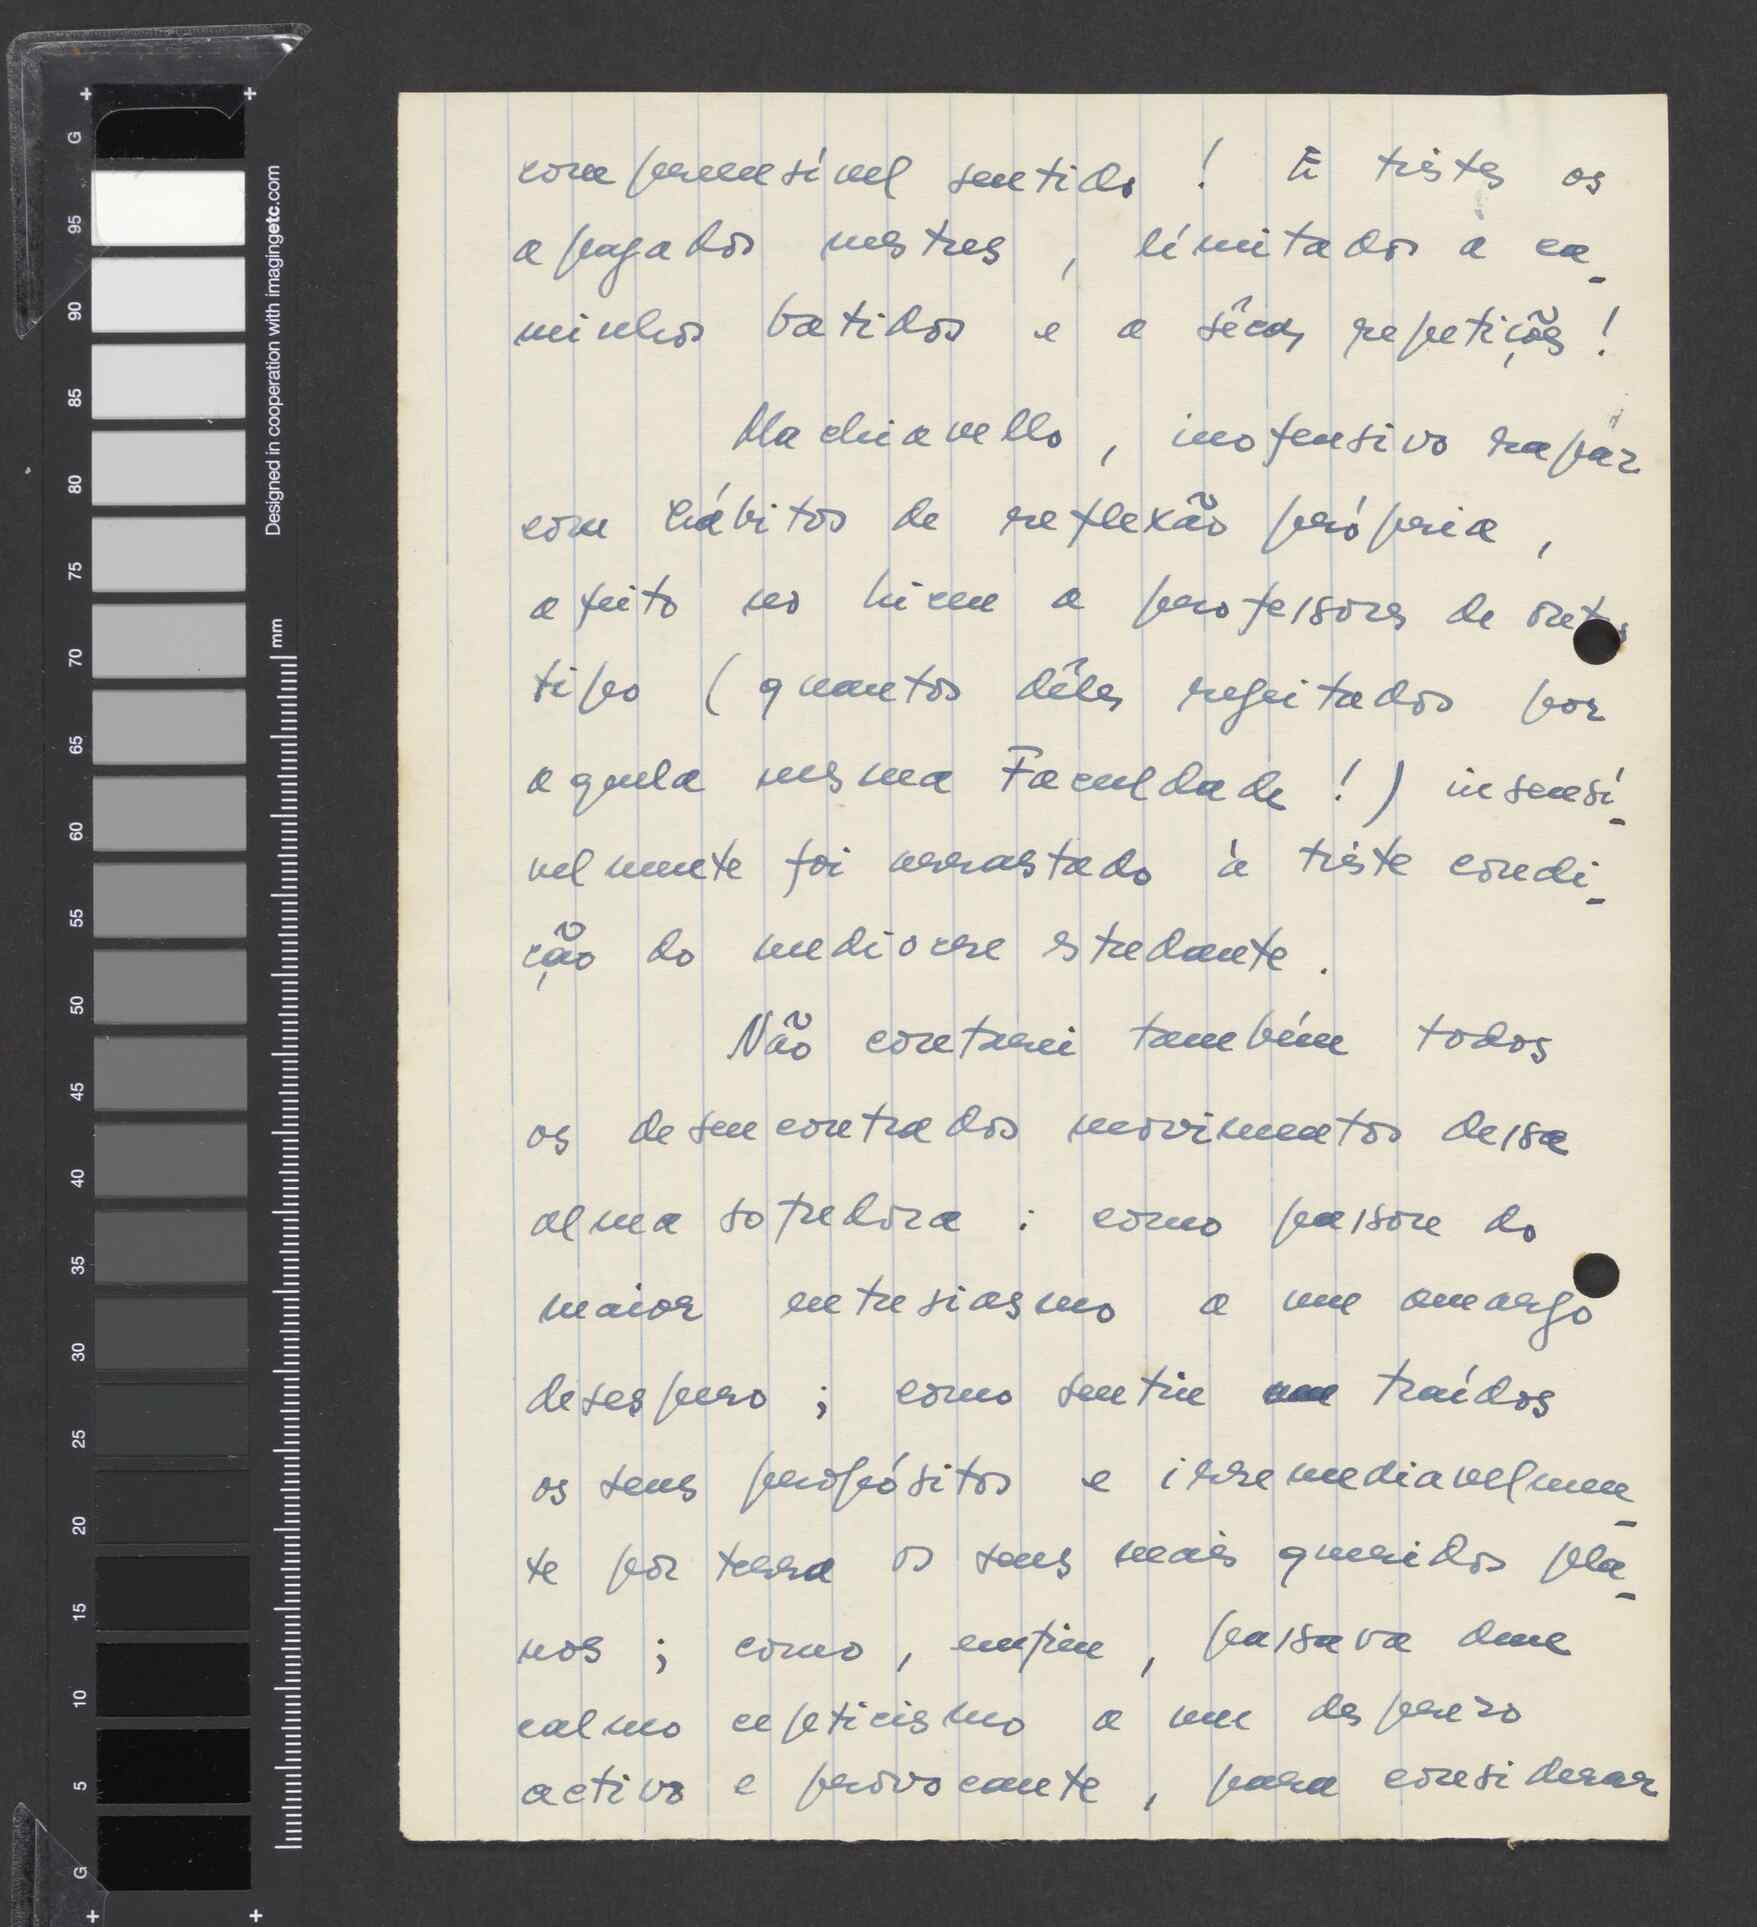 compreensível sentido ! E tristes os
apagados mestres , limitados a ca-
minhos batidos e a sêcas repetições !
Machiavello , inofensivo rapaz
com hábitos de reflexão própria ,
afeito no liceu a professores de outro
tipo ( quantos dêles regeitados por
aquela mesma Faculdade ! ) insensí-
velmente foi arrastado à triste condi-
ção do mediocre estudante .
Não contarei também todos
os desencontrados movimentos dessa
alma sofredora : como passou do
maior entusiasmo a um amargo
desespero ; como sentiu traídos
os seus propósitos e irremediavelmen-
te por terra os seus mais queridos pla-
nos ; como , enfim , passava dum
calmo cepticismo a um desprezo
activo e provocante , para considerar
G
95
90
85
80
75
70
65
60
55
50
45
40
35
30
25
20
15
10
5
G
Designed in cooperation with imagingetc.com
mm